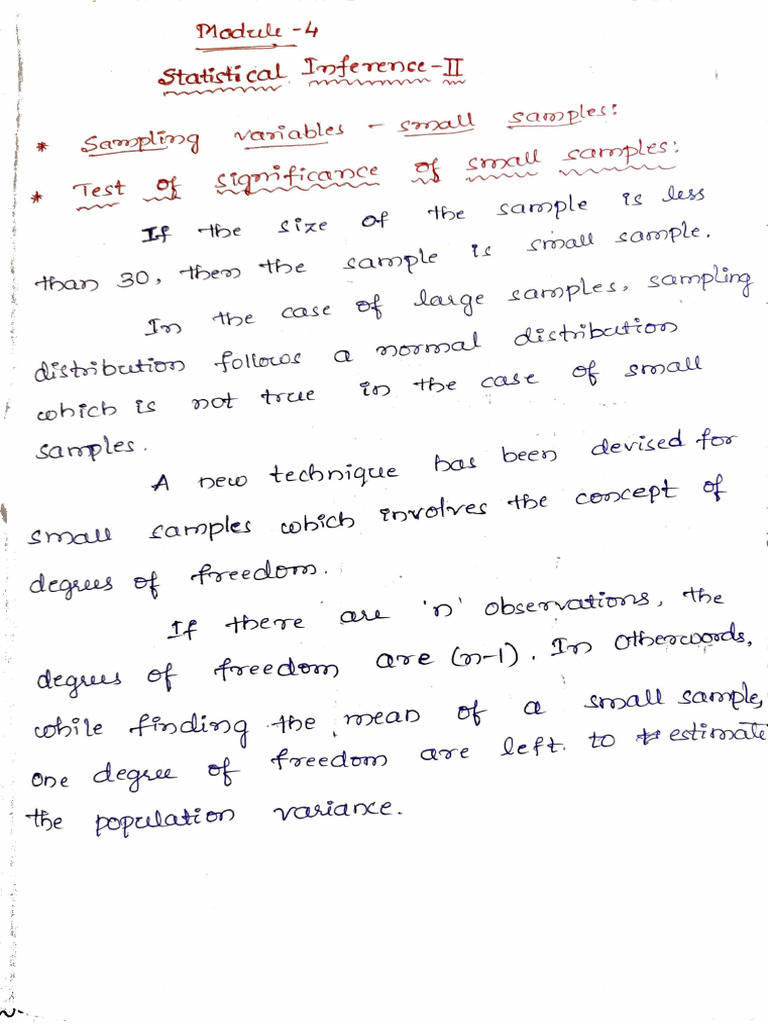 Module-4
Statistical Inference-II
* Sampling variables - small samples:
* Test of significance of small samples:
If the size of the sample is less
than 30, then the sample is small sample.
In the case of large samples, sampling
distribution follows a normal distribution
which is not true in the case of small
samples.
A new technique has been devised for
small samples which involves the concept of
degrees of freedom.
If there are 'n' observations, the
degrees of freedom are (n-1). In otherwords,
while finding the mean of a small sample,
one degree of freedom are left. to estimate
the population variance.